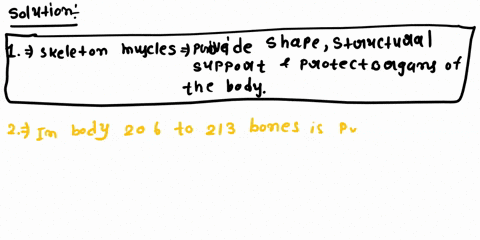 Solution:-
1.⇒ skeleton muscles ⇒ provide shape, structural
support & protect organs of
the body.
2.⇒ In body 206 to 213 bones is